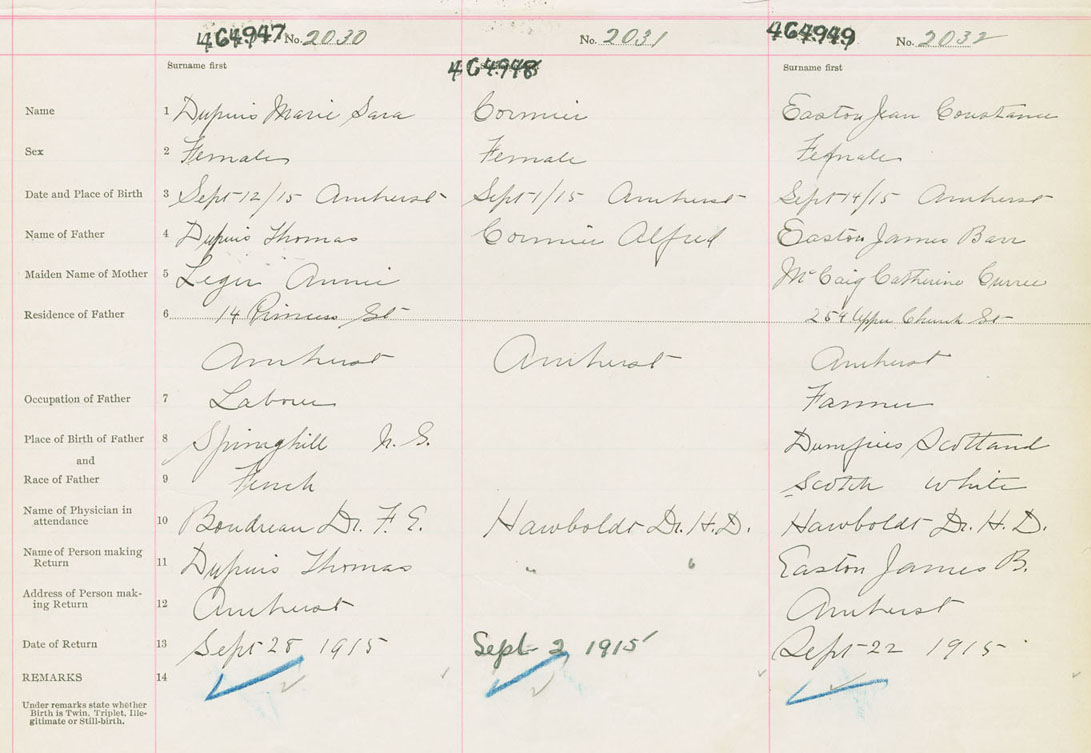 464947 No. 2030 No. 2031 464949 No. 2032
Surname first 464948 Surname first
Name 1 Dupuis Marie Sara Cormier Easton Jean Constance
Sex 2 Female Female Female
Date and Place of Birth 3 Sept 12/15 Amherst Sept 1/15 Amherst Sept 14/15 Amherst
Name of Father 4 Dupuis Thomas Cormier Alfred Easton James Barr
Maiden Name of Mother 5 Leger Annie McCaig Catherine Currie
Residence of Father 6 14 Princess St 254 Upper Church St
Amherst Amherst Amherst
Occupation of Father 7 Labourer Farmer
Place of Birth of Father 8 Springhill N.S. Dumfries Scotland
and
Race of Father 9 French Scotch White
Name of Physician in
attendance 10 Boudreau Dr. F. E. Hawboldt Dr. H.D. Hawboldt Dr. H. D.
Name of Person making
Return 11 Dupuis Thomas " " Easton James B.
Address of Person mak-
ing Return 12 Amherst Amherst
Date of Return 13 Sept 28 1915 Sept 2 1915 Sept 22 1915
REMARKS 14
Under remarks state whether
Birth is Twin, Triplet, Ille-
gitimate or Still-birth.